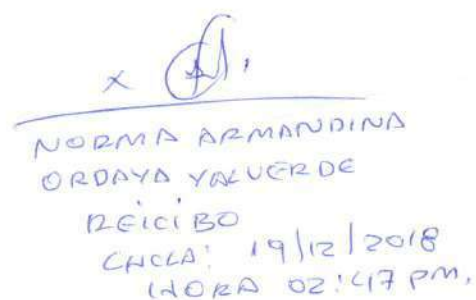 x
NORMA ARMANDINA
ORDAYA VALVERDE
REICIBO
19/12/2018
HORA 02:47 PM.